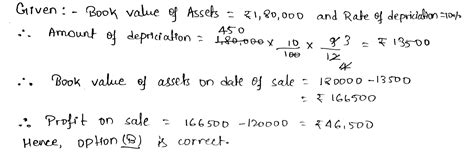 Given:- Book value of Assets = ₹1,80,000 and Rate of depriciation=10%
∴ Amount of depriciation = 450 1,80,000 × 10/100 × 9 3/12 4 = ₹ 13500
∴ Book value of assets on date of sale = 180000 - 13500
= ₹ 166500
∴ Profit on sale = 166500 - 120000 = ₹46,500
Hence, option (B) is correct.